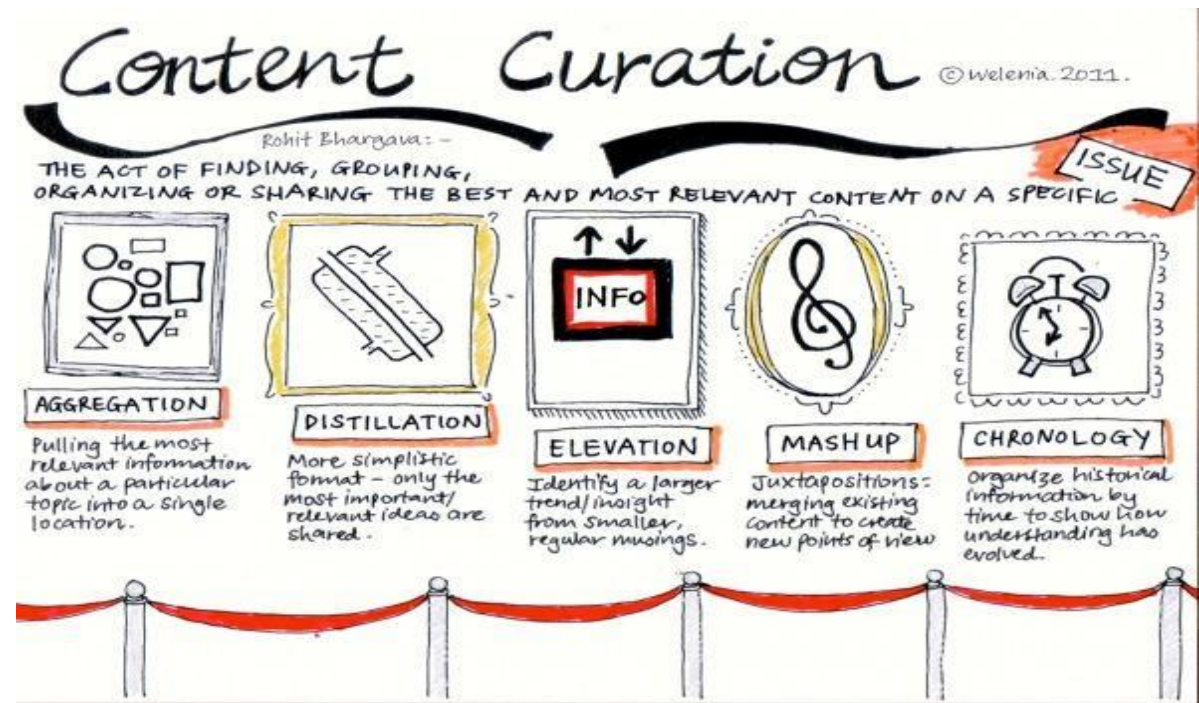 Content Curation © Welenia. 2011.
Rohit Bhargava:-
THE ACT OF FINDING, GROUPING,
ORGANIZING OR SHARING THE BEST AND MOST RELEVANT CONTENT ON A SPECIFIC
ISSUE
INFO
AGGREGATION
Pulling the most
relevant information
about a particular
topic into a single
location.
DISTILLATION
More simplistic
format - only the
most important/
relevant ideas are
shared.
ELEVATION
Identify a larger
trend/insight
from smaller,
regular musings.
MASHUP
Juxtapositions:
merging existing
content to create
new points of view
CHRONOLOGY
Organize historical
information by
time to show how
understanding has
evolved.